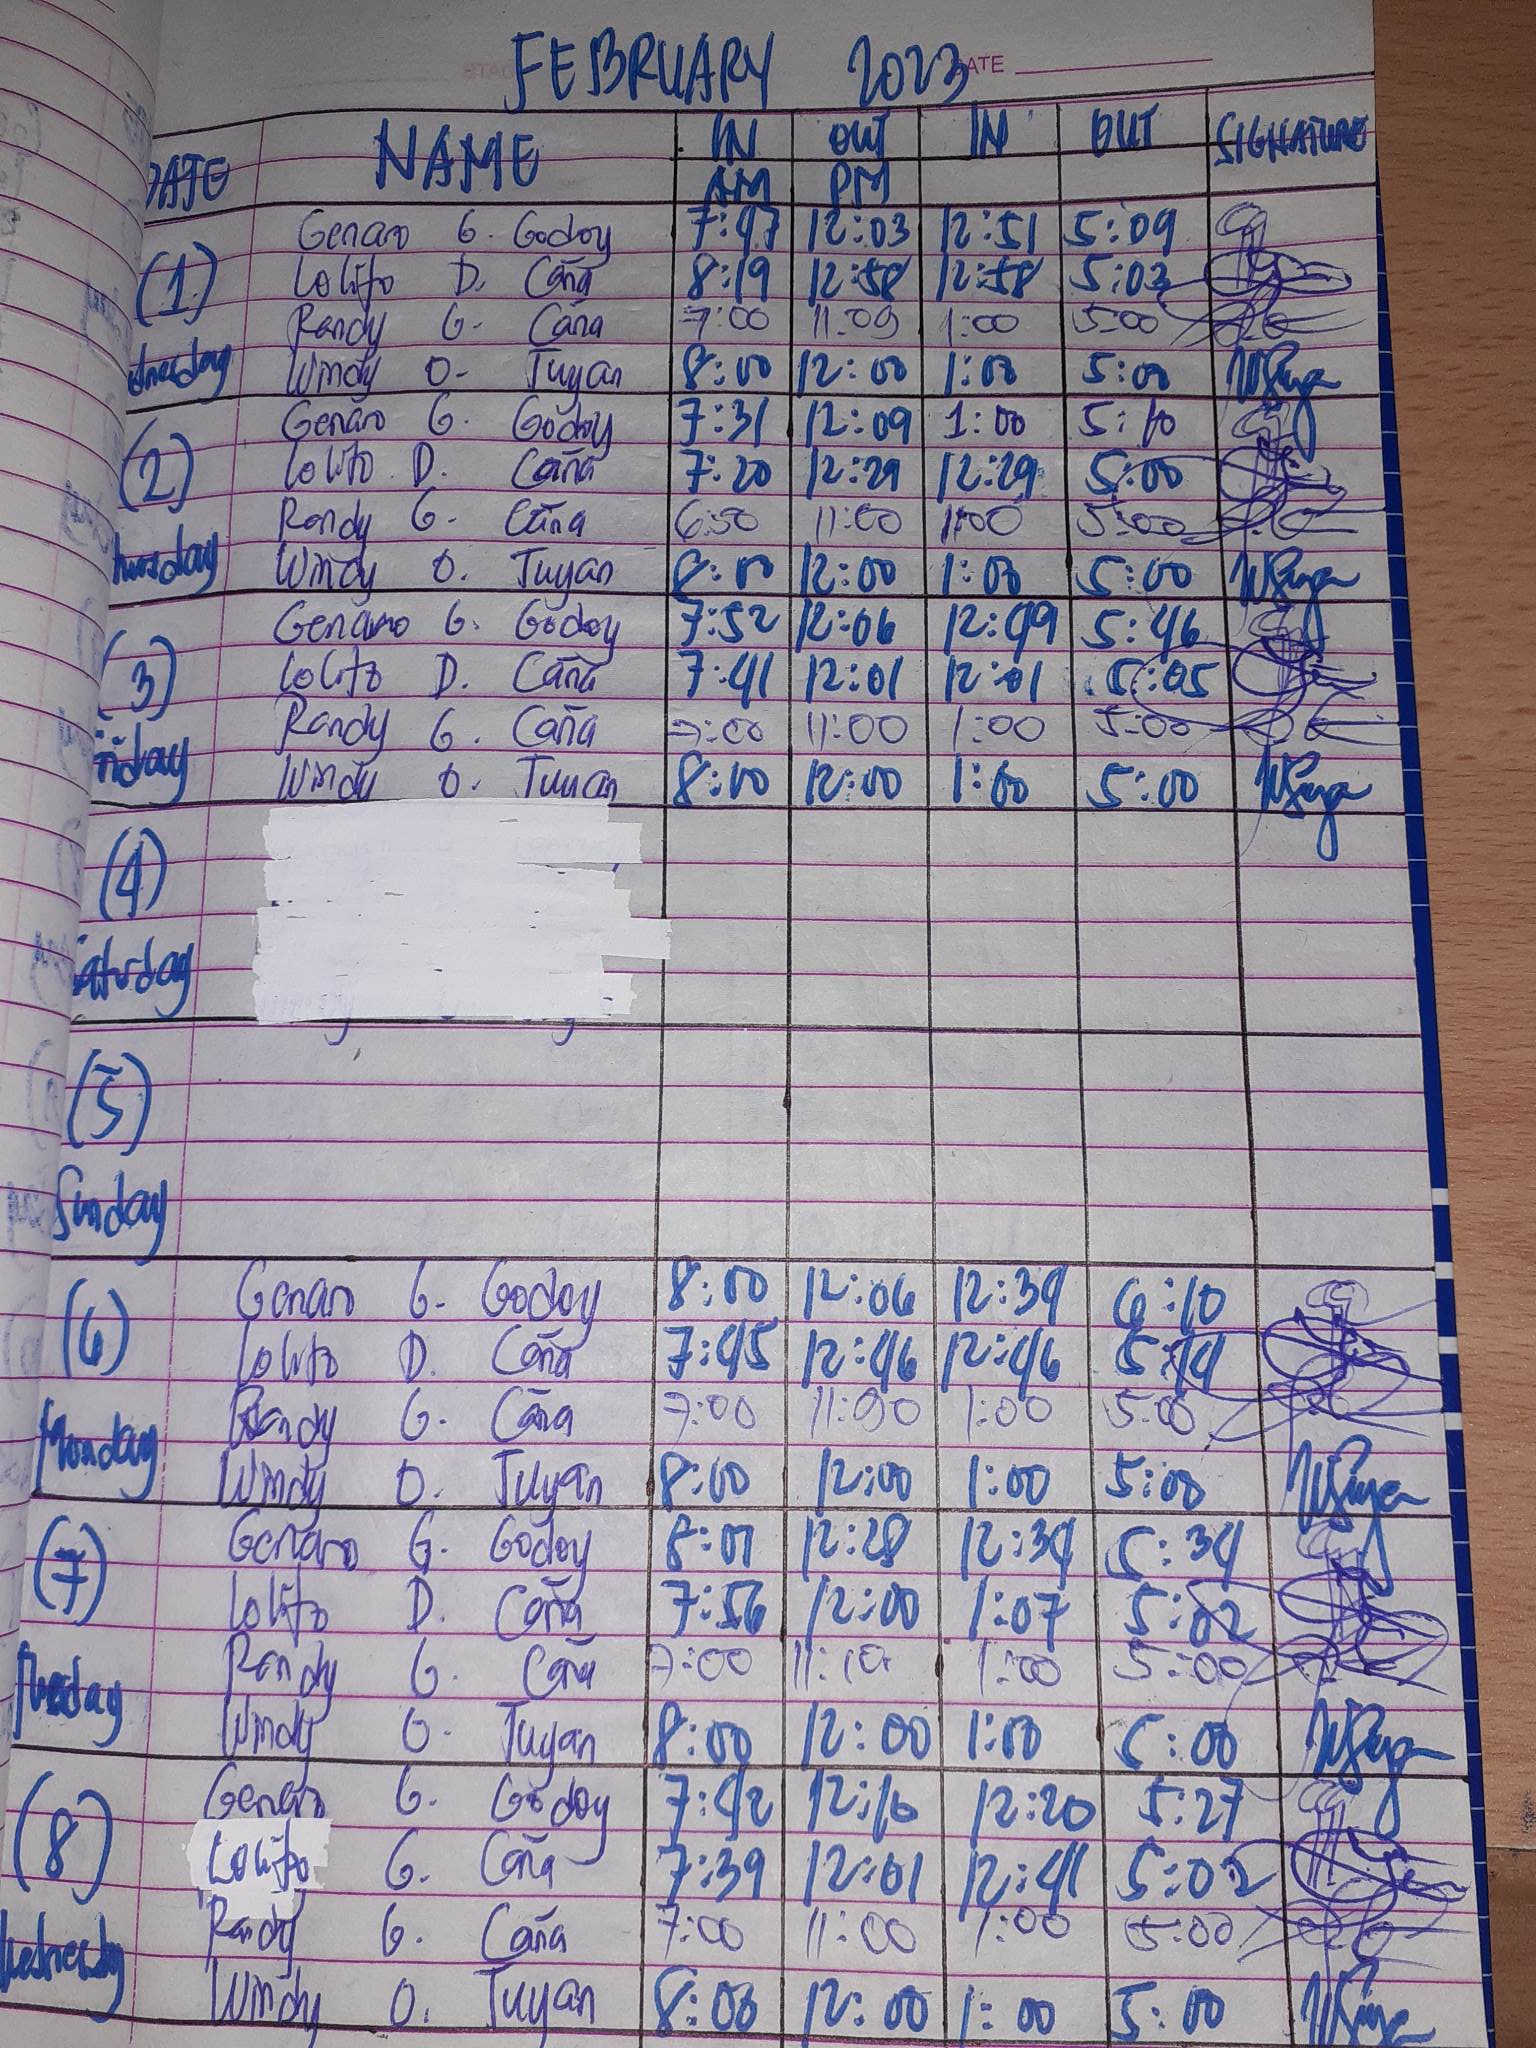 FEBRUARY 2023 DATE
DATE NAME IN OUT IN OUT SIGNATURE
AM PM
Genaro G. Godoy 7:47 12:03 12:51 5:09
(1) Lolito D. Caña 8:19 12:58 12:58 5:03
Randy G. Caña 7:00 11:09 1:00 5:00
dnesday Windy O. Tuyan 8:00 12:00 1:00 5:00
Genaro G. Godoy 7:31 12:09 1:00 5:10
(2) Lolito D. Caña 7:20 12:29 12:29 5:00
Randy G. Caña 6:50 11:00 1:00 5:00
hursday Windy O. Tuyan 8:00 12:00 1:00 5:00
Genaro G. Godoy 7:52 12:06 12:49 5:46
(3) Lolito D. Caña 7:41 12:01 12:01 5:05
Randy G. Caña 7:00 11:00 1:00 5:00
riday Windy O. Tuyan 8:00 12:00 1:00 5:00
(4)
aturday
(5)
Sunday
Genaro G. Godoy 8:00 12:06 12:39 6:10
(6) Lolito D. Caña 7:45 12:46 12:46 5:14
Randy G. Caña 7:00 11:00 1:00 5:00
Monday Windy O. Tuyan 8:00 12:00 1:00 5:00
Genaro G. Godoy 8:01 12:28 12:34 5:34
(7) Lolito D. Caña 7:56 12:00 1:07 5:02
Randy G. Caña 7:00 11:10 1:00 5:00
Tuesday Windy O. Tuyan 8:00 12:00 1:00 5:00
Genaro G. Godoy 7:42 12:10 12:20 5:27
(8) Lolito G. Caña 7:39 12:01 12:41 5:02
Randy G. Caña 7:00 11:00 1:00 5:00
Wednesday Windy O. Tuyan 8:00 12:00 1:00 5:00